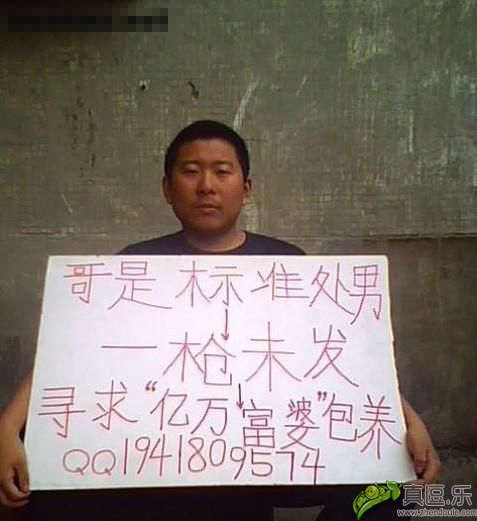 哥是标准处男
一枪未发
寻求“亿万富婆”包养
QQ1941809574
真逗.乐
www.zhendoule.com